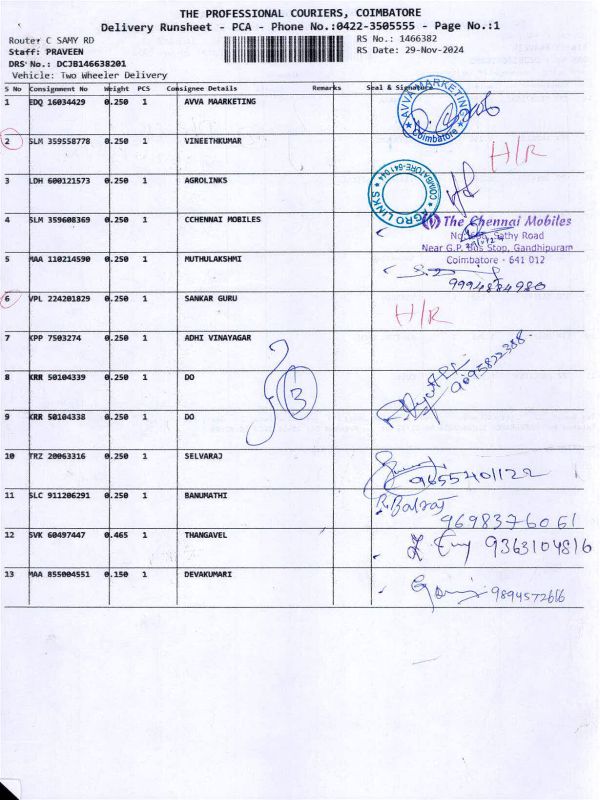 THE PROFESSIONAL COURIERS, COIMBATORE
Delivery Runsheet - PCA - Phone No.:0422-3505555 - Page No.:1
Router C SAMY RD
RS No.: 1466382
Staff: PRAVEEN
RS Date: 29-Nov-2024
DRS No.: DCJB146638201
Vehicle: Two Wheeler Delivery
S No Consignment No Weight PCS Consignee Details Remarks Seal & Signature
1 EDQ 16034429 0.250 1 AVVA MAARKETING
AVVA MARKETING Coimbatore
2 SLM 359558778 0.250 1 VINEETHKUMAR
H/R
3 LDH 600121573 0.250 1 AGROLINKS
AGRO LINKS COIMBATORE-641 044
4 SLM 359608369 0.250 1 CCHENNAI MOBILES
The Chennai Mobiles
Sathy Road
Near G.P. Bus Stop, Gandhipuram
Coimbatore - 641 012
5 MAA 110214590 0.250 1 MUTHULAKSHMI
9994884980
6 VPL 224201829 0.250 1 SANKAR GURU
H/R
7 KPP 7503274 0.250 1 ADHI VINAYAGAR
8 KRR 50104339 0.250 1 DO
3
9095822388
9 KRR 50104338 0.250 1 DO
10 TRZ 20063316 0.250 1 SELVARAJ
9655401122
11 SLC 911206291 0.250 1 BANUMATHI
R.Balraj
9698376061
12 SVK 60497447 0.465 1 THANGAVEL
9363104816
13 MAA 855004551 0.150 1 DEVAKUMARI
9894572616